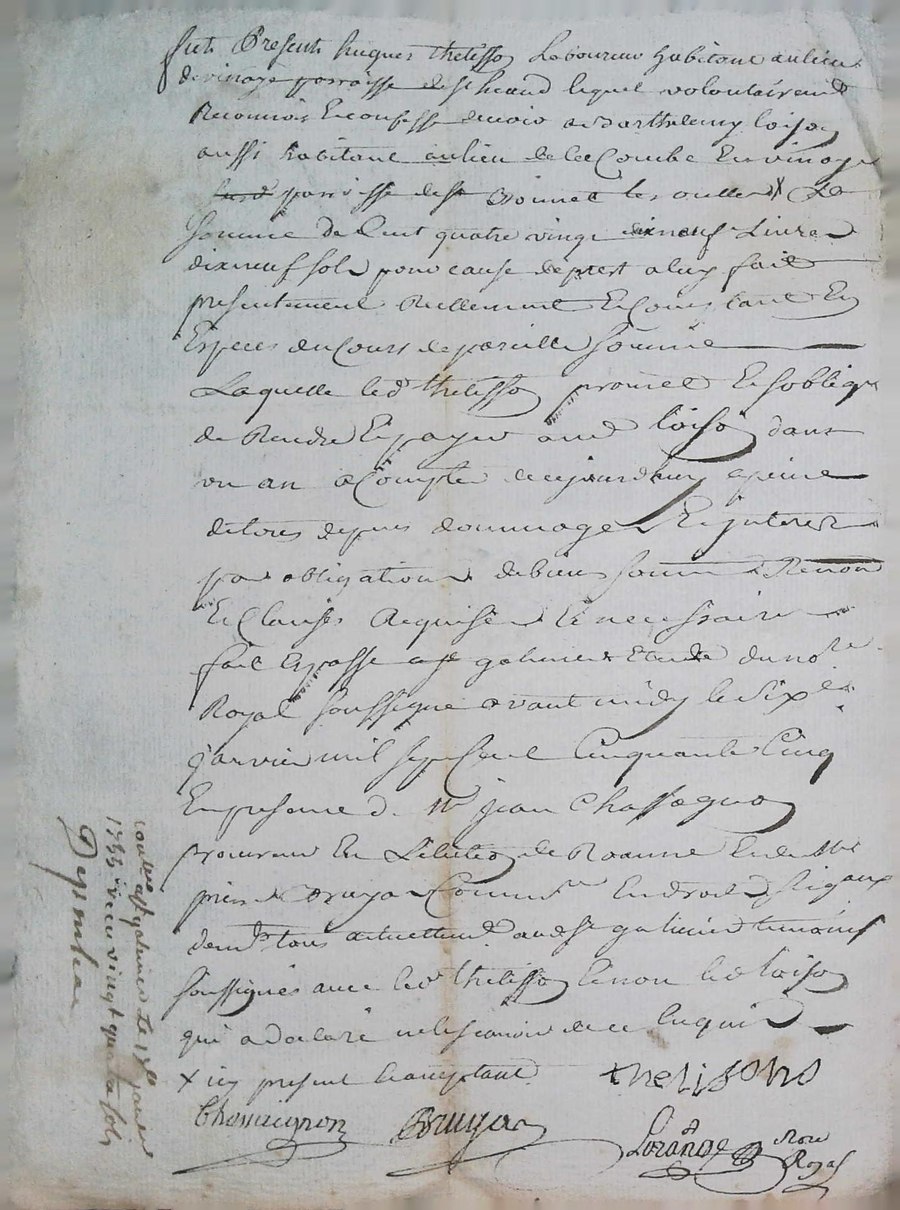 fut Present hugues thelisson Laboureur habitant au lieu
de vinage parroisse de st heand lequel volontairement
Reconnois Et confesse devoir a Barthelemy loison
aussi habitant au lieu de la Combe En vinage
parroisse de st Bonnet les oulles X La
somme de Cent quatre vingt dix neuf Livres
dix neuf sols pour cause de prest a luy fait
presentement Reellement Et Comptant En
Especes du Cours de pareille somme
Laquelle led thelisson promet Et soblige
de Rendre Et payer aud loison dans
un an a Compter de ce jourdhuy a peine
de tous depens dommages Et interets
par obligation de biens soum Renon
Et Clauses Requises Et necessaires
fait Et passe a st galmier Etude du nore
Royal soussigne avant midy le six
janvier mil sept Cent Cinquante Cinq
En presence de Me jean Chassagnon
procureur En L'election de Roanne
Bruyas Commis En droit
tous aud st galmier temoins
soussignes avec led thelisson Et non led loison
qui a declare ne le scavoir de ce Enquis
X icy present Et acceptant thelisons
Chassaignon Bruyas
Lorange Nore
Royal
controllé a st galmier Le 13e janvier
1755 recu vingt quatre sols